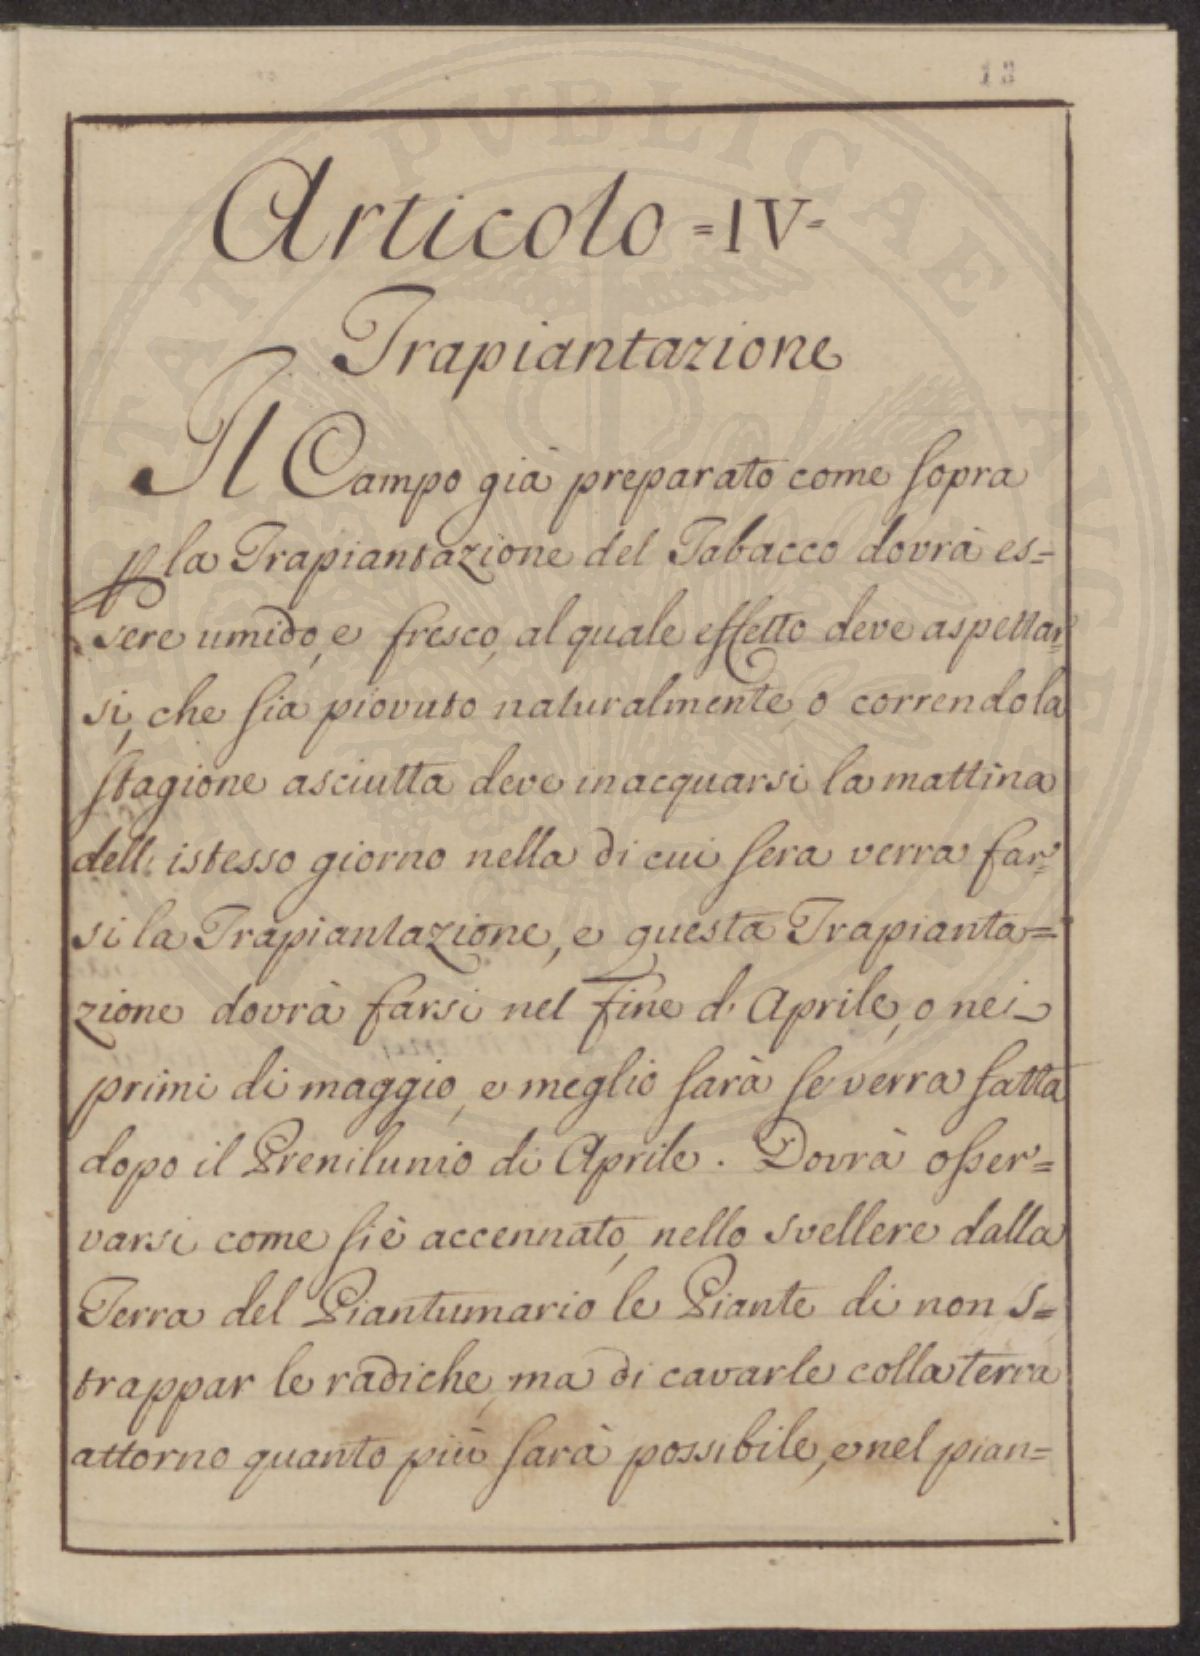 13
Articolo =IV=
Trapiantazione
Il Campo già preparato come sopra
p la Trapiantazione del Tabacco dovrà es=
sere umido, e fresco, al quale effetto deve aspettar=
si, che sia piovuto naturalmente, o correndo la
stagione asciutta deve inacquarsi la mattina
dell' istesso giorno nella di cui sera verra far=
si la Trapiantazione, e questa Trapianta=
zione dovrà farsi nel fine d' Aprile, o nei
primi di maggio, e meglio sarà se verra fatta
dopo il Prenilunio di Aprile. Dovrà osser=
varsi come si è accennato, nello svellere dalla
Terra del Piantumario le Piante di non s=
trappar le radiche, ma di cavarle colla terra
attorno quanto più sarà possibile, e nel pian=